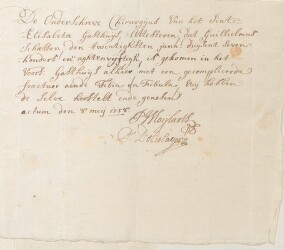 De Onderschreve Chirurgijns van het Sint
Elisabeth Gasthuijs, Attesteren, dat Guillielmus
Scholten den twintighsten junii duijsent seven
hondert en aghtenvijftigh, is gekomen in het
voors. Gasthuijs alhier met een gecompliceerde
fractuer aende Tibia en Fibula, en hebben
de selve herstelt ende genesen
actum den 8 meij 1758